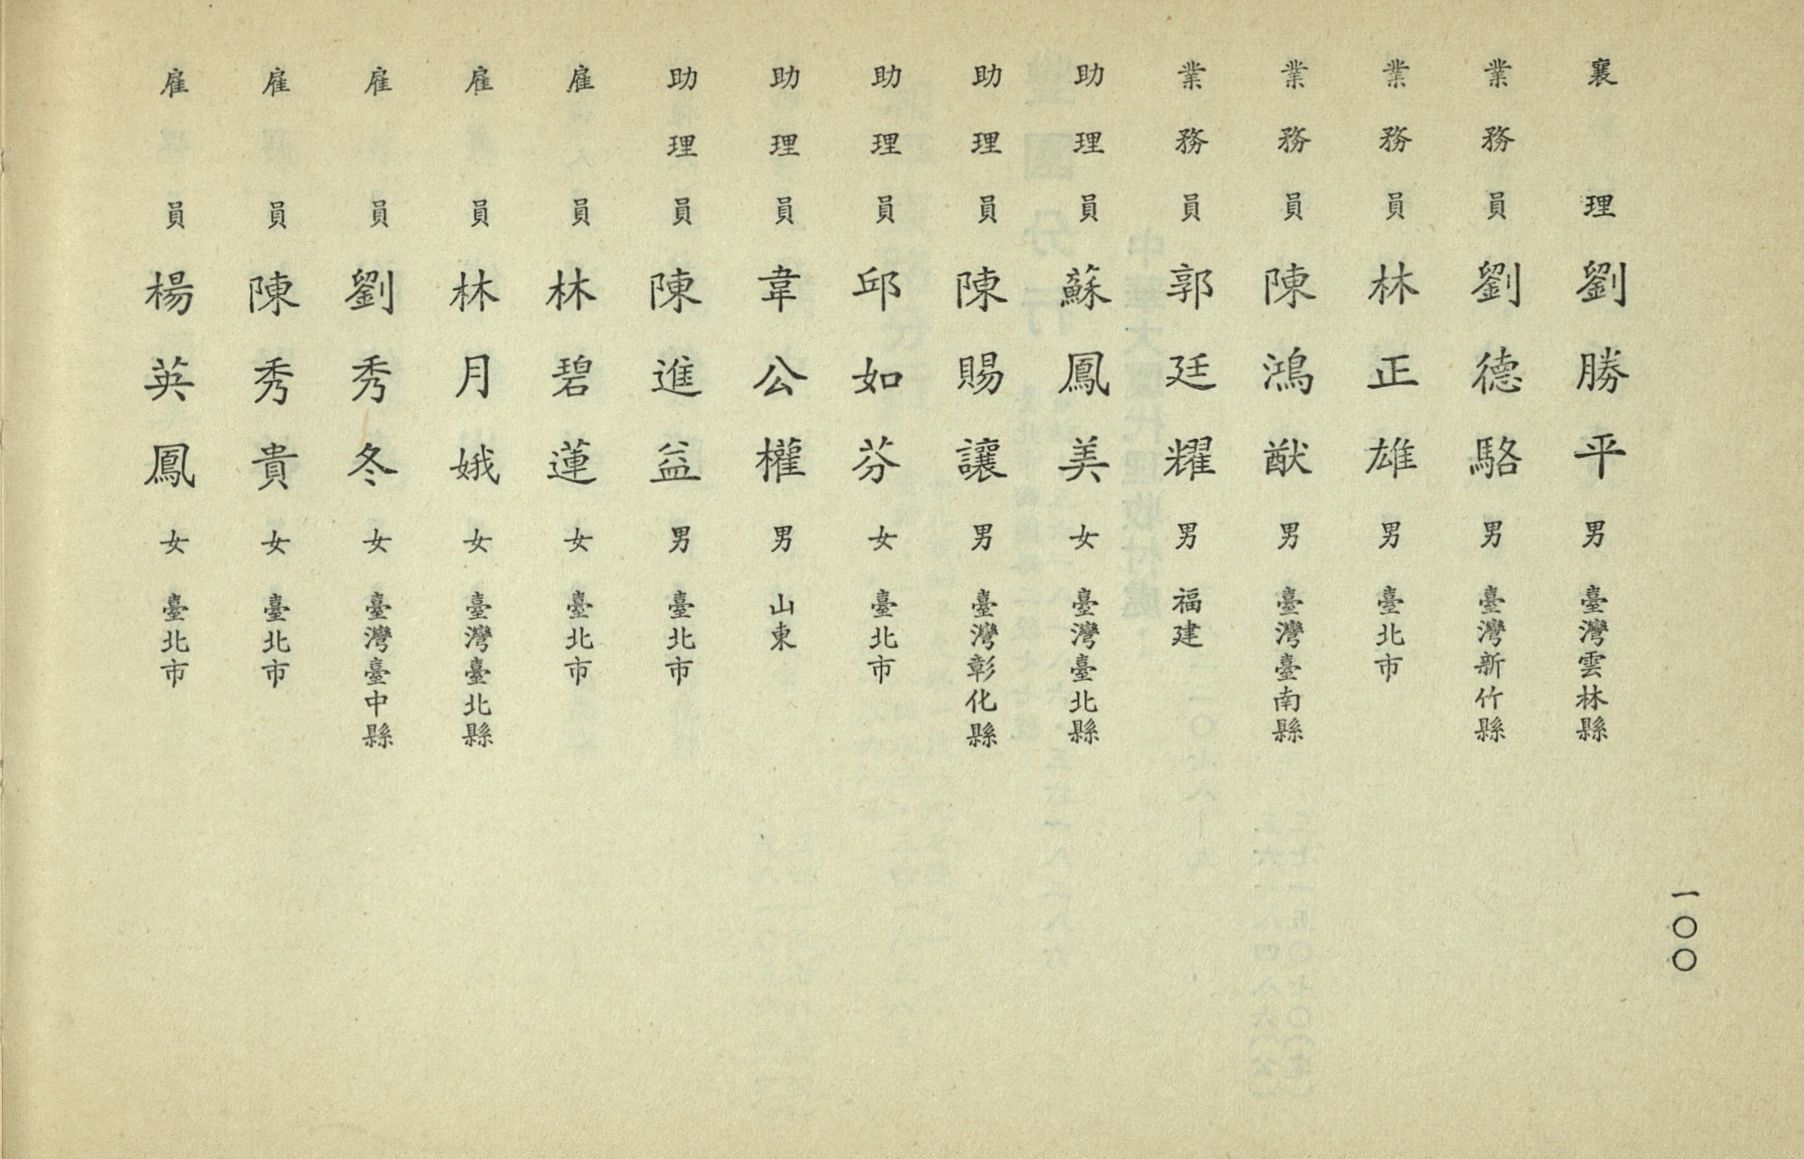 一〇〇
襄理 劉勝平 男 臺灣雲林縣
業務員 劉德駱 男 臺灣新竹縣
業務員 林正雄 男 臺北市
業務員 陳鴻猷 男 臺灣臺南縣
業務員 郭廷耀 男 福建
助理員 蘇鳳美 女 臺灣臺北縣
助理員 陳賜讓 男 臺灣彰化縣
助理員 邱如芬 女 臺北市
助理員 韋公權 男 山東
助理員 陳進益 男 臺北市
雇員 林碧蓮 女 臺北市
雇員 林月娥 女 臺灣臺北縣
雇員 劉秀冬 女 臺灣臺中縣
雇員 陳秀貴 女 臺北市
雇員 楊英鳳 女 臺北市